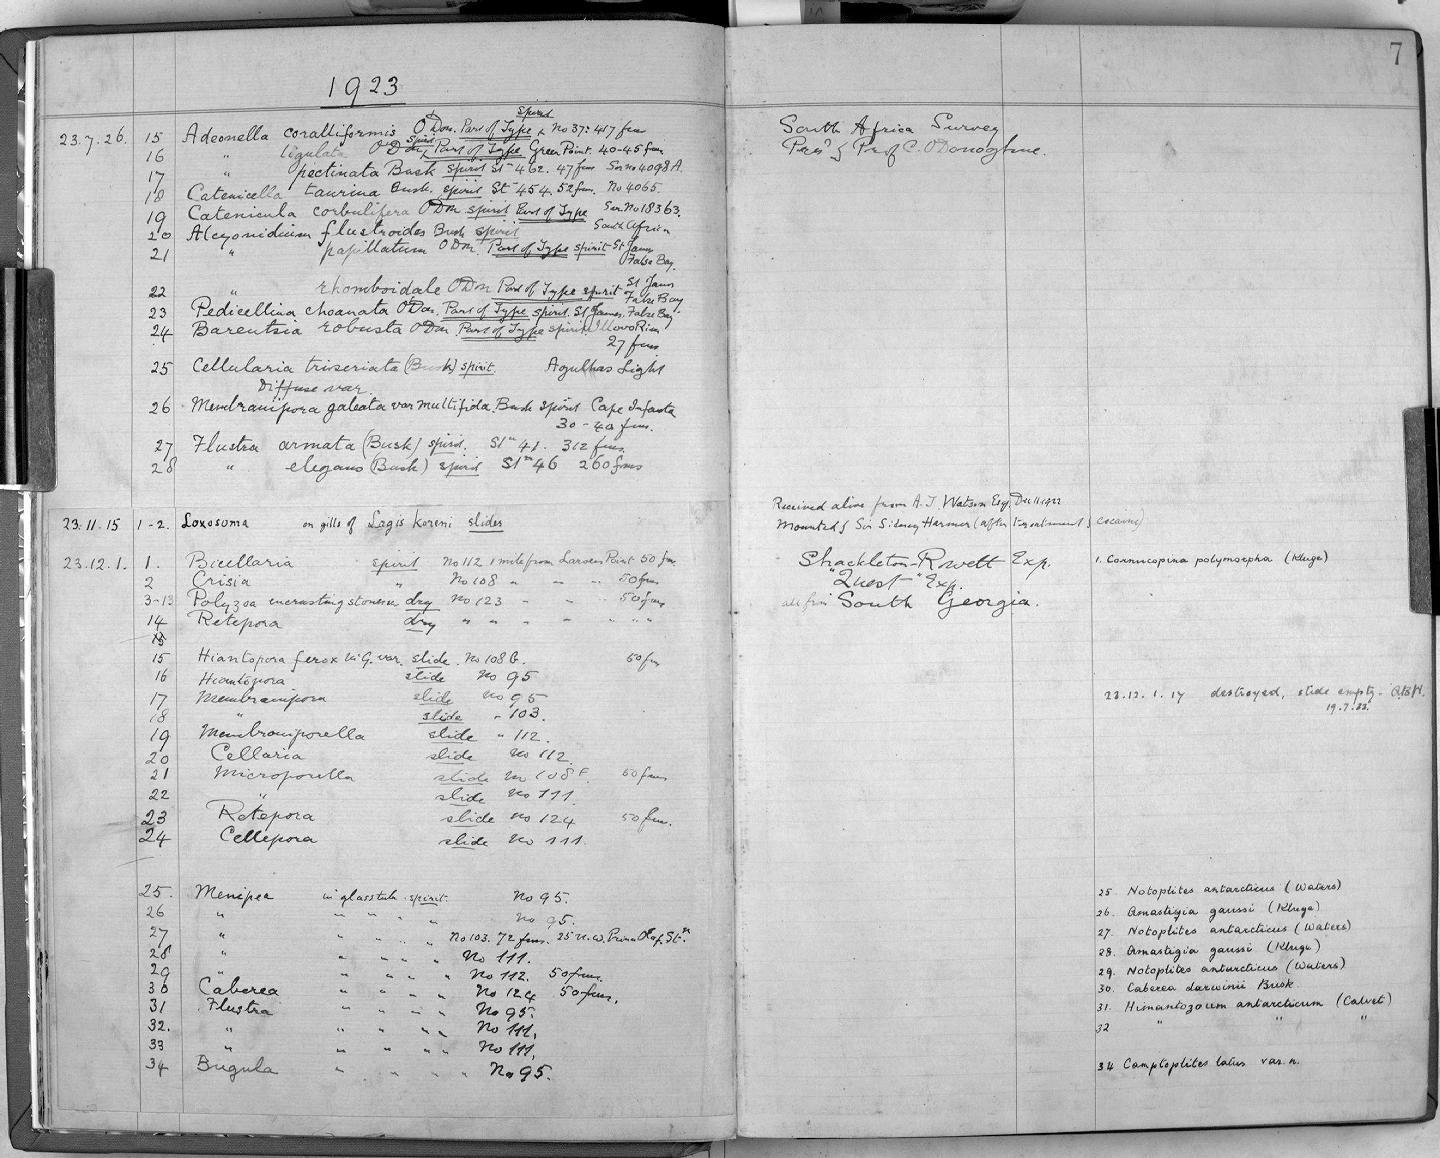 7
1923
23.7.26. 15 Adeonella coralliformis O'Don. Part of Type spirit No 37: 417 fms
16 " ligulata O'Don spirit Part of Type Green Point. 40-45 fms
17 " pectinata Busk spirit Stn 462. 47 fms Ser no 4098A.
18 Catenicella taurina Busk. spirit Stn 454. 52 fms. No 4065.
19 Catenicula corbulifera O'Don spirit Part of Type Ser. No 18363.
20 Alcyonidium flustroides Busk spirit South Africa
21 " papillatum O'Don. Part of Type spirit St James
False Bay.
22 " rhomboidale O'Don Part of Type spirit St James
False Bay
23 Pedicellina choanata O'Don. Part of Type spirit. St James, False Bay
24 Barentsia robusta O'Don. Part of Type spirit. Illovo River
27 fms
25 Cellularia triseriata (Busk) spirit. Agulhas Light
Diffuse var.
26 Membranipora galeata var multifida. Busk spirit Cape Infanta
30-40 fms.
27 Flustra armata (Busk) spirit. Stn 41. 312 fms.
28 " elegans (Busk) spirit Stn 46 260 fms
23.11.15 1-2. Loxosoma on gills of Lagis koreni slides
23.12.1. 1. Bicellaria spirit No 112 1 mile from Larsen Point 50 fms
2 Crisia " No 108 " " " 50 fms
3-13 Polyzoa encrusting stones dry No 123 " " " 50 fms
14 Retepora dry " " " " " " "
15
15 Hiantopora ferox McG. var. slide. No 108 b. 50 fms
16 Hiantopora slide No 95
17 Membranipora slide No 95
18 " slide " 103.
19 Membraniporella slide " 112.
20 Cellaria slide No 112.
21 Microporella slide No 108 50 fms
22 " slide No 111.
23 Retepora slide No 124 50 fms.
24 Cellepora slide No 111.
25. Menipea in glass tube spirit. No 95.
26 " " " " " No 95.
27 " " " " " No 103. 72 fms. 25 N.W. Prince Olaf. Stn.
28 " " " " " No 111.
29 " " " " " No 112. 50 fms.
30 Caberea " " " " No 124 50 fms.
31 Flustra " " " " No 95.
32. " " " " " No 111.
33 " " " " " No 111.
34 Bugula " " " " No 95.
South Africa Survey
Pres'd by Prof C. O'Donoghue.
Received alive from A.T. Watson Esq. Dec 11 1922
Mounted by Sir Sidney Harmer (after treatment by cocaine)
Shackleton-Rowett Exp.
"Quest" Exp.
all from South Georgia.
1. Cornucopina polymorpha (Kluge)
23.12.1.17 destroyed, slide empty.
19.7.33.
25. Notoplites antarcticus (Waters)
26. Amastigia gaussi (Kluge)
27. Notoplites antarcticus (Waters)
28. Amastigia gaussi (Kluge)
29. Notoplites antarcticus (Waters)
30. Caberea darwinii Busk
31. Himantozoum antarcticum (Calvet)
32 " " "
34 Camptoplites latus var. n.